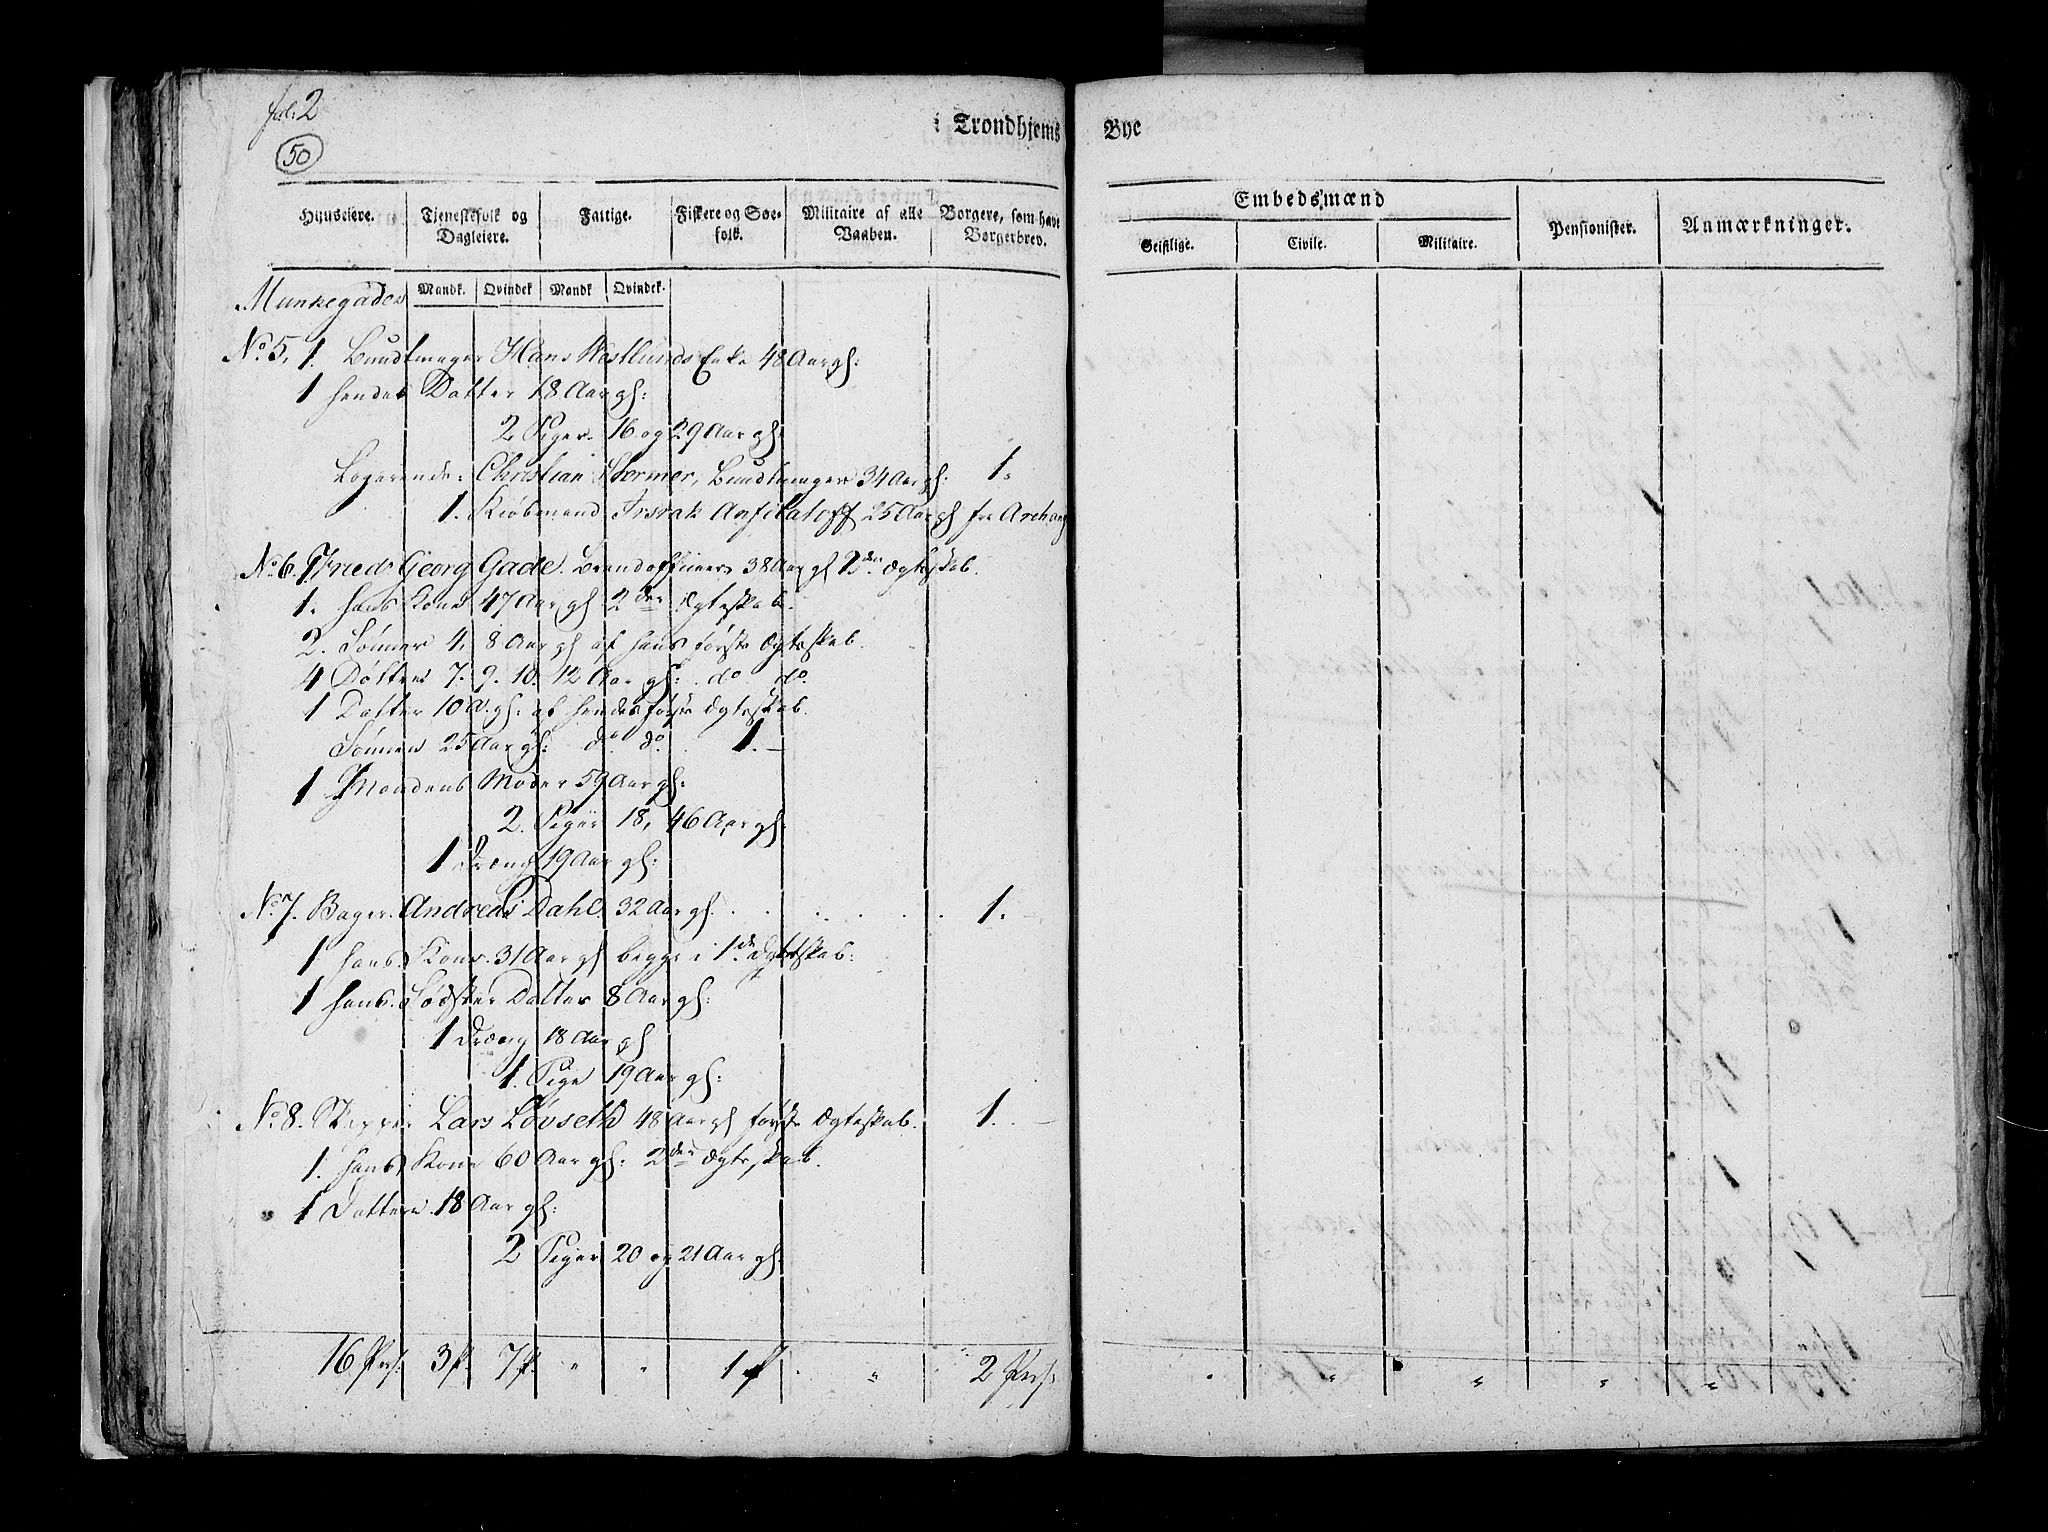 fol: 2
50
i Trondhjems Bye
Huuseiere. Tjenestefolk og Dagleiere. Fattige. Fiskere og Søefolk. Militaire af alle Vaaben. Borgere, som have Borgerbrev. Embedsmænd Pensionister. Anmærkninger.
Geistlige. Civile. Militaire.
Munkegaden Mandk. Qvindek Mandk Qvindek.
No. 5. 1. Bundtmager Hans Westlunds Enke 48 Aar gl:
1 hendes Datter 18 Aar gl:
2 Piger. 16 og 29 Aar gl:
Logerende: Christian Stormer, Bundtmager 34 Aar gl: 1.
1. Kiöbmand Issak Anfilatoff 25 Aar gl fra Archang
No. 6. 1 Fried: Georg Gade. Brandofficeer 38 Aar gl 2den Ægteskab.
1. hans Kone 47 Aar gl 2den Ægteskab.
2. Sönner 4, 8 Aar gl af hans förste Ægteskab.
4 Döttre 7. 9. 10. 12 Aar gl: do do.
1 Datter 10 A. gl: af hendes förste Ægteskab.
Sönnen 25 Aar gl: do do. 1. –
1 Mandens Moder 59 Aar gl:
2. Piger 18, 46 Aar gl:
1 Dreng 19 Aar gl:
No. 7. Bager. Andreas Dahl 32 Aar gl. 1. –
1 hans Kone. 31 Aar gl begge i 1ste Ægteskab:
1 hans. Södster Datter 8 Aar gl:
1 Dreng 18 Aar gl
1. Pige 19 Aar gl:
No. 8. Skipper Lars Lövseth 48 Aar gl förste Ægteskab. 1. –
1. hans Kone 60 Aar gl: 2den Ægteskab.
1 Datter. 18 Aar gl:
2 Piger 20 og 21 Aar gl:
16 Prs. 3 p. 7 p. " " 1 p " 2 Prs: " " " "